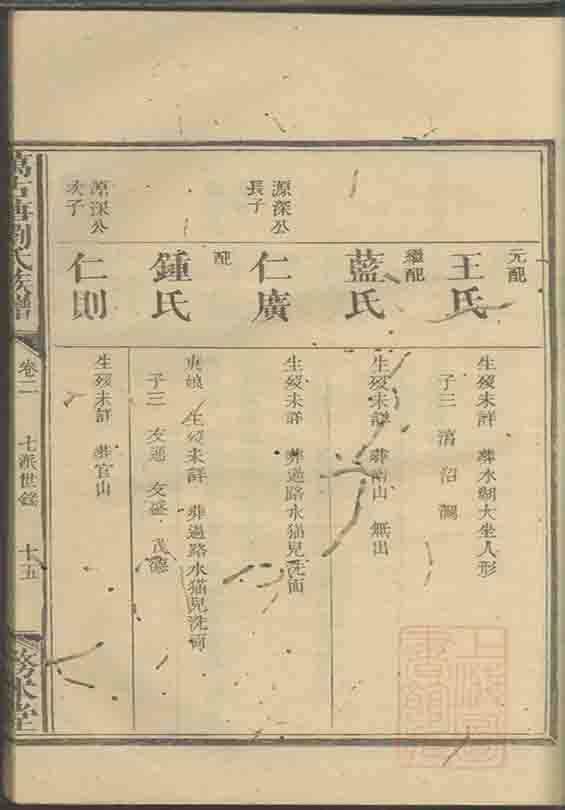 元配
王氏
生歿未詳 葬水湖大坐人形
子三 清 沼 瀾
繼配
藍氏
生歿未詳 葬南山 無出
源深公
長子
仁廣
生歿未詳 葬過路水猫兒洗面
配
鍾氏
生歿未詳 葬過路水猫兒洗面
子三 文通 文 茂德
源深公
次子
仁則
生歿未詳 葬官山
萬古塘劉氏族譜
卷二
七派世錄
十五